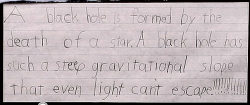 A black hole is formed by the
death of a star. A black hole has
such a steep gravitational slope
that even light cant escape!!!!!!!!!!